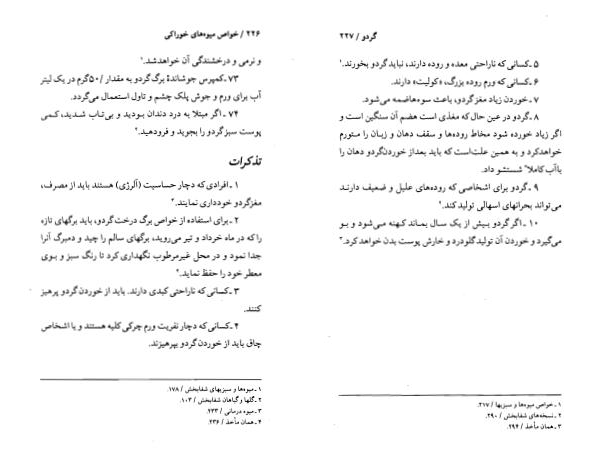 ۲۲۶ / خواص میوه‌های خوراکی
و نرمی و درخشندگی آن خواهدشد.۱
۷۳ـ کمپرس جوشاندهٔ برگ گردو به مقدار /۵۰گرم در یک لیتر
آب برای ورم و جوش پلک چشم و تاول استعمال می‌گردد.
۷۴ـ اگر مبتلا به درد دندان بودید و بی‌تاب شدید، کمی
پوست سبزگردو را بجوید و فرودهید.۲
تذکرات
۱ـ افرادی که دچار حساسیت (آلرژی) هستند باید از مصرف،
مغزگردو خودداری نمایند.۳
۲ـ برای استفاده از خواص برگ درخت گردو، باید برگهای تازه
را که در ماه خرداد و تیر می‌روید، برگهای سالم را چید و دمبرگ آنرا
جدا نمود و در محل غیرمرطوب نگهداری کرد تا رنگ سبز و بوی
معطر خود را حفظ نماید.۴
۳ـ کسانی که ناراحتی کبدی دارند. باید از خوردن گردو پرهیز
کنند.
۴ـ کسانی که دچار نفریت ورم چرکی کلیه هستند و یا اشخاص
چاق باید از خوردن گردو بپرهیزند.
۱ ـ میوه‌ها و سبزیهای شفابخش / ۱۷۸.
۲ ـ گلها و گیاهان شفابخش / ۱۰۳.
۳ ـ میوه درمانی / ۲۳۳.
۴ ـ همان مأخذ / ۲۳۶.
گردو / ۲۲۷
۵ـ کسانی که ناراحتی معده و روده دارند، نباید گردو بخورند.۱
۶ـ کسانی که ورم روده بزرگ، «کولیت» دارند.
۷ـ خوردن زیاد مغزگردو، باعث سوءهاضمه می‌شود.
۸ـ گردو در عین حال که مغذی است هضم آن سنگین است و
اگر زیاد خورده شود مخاط روده‌ها و سقف دهان و زبان را متورم
خواهدکرد و به همین علت‌است که باید بعداز خوردن‌گردو دهان را
باآب کاملاً شستشو داد.
۹ـ گردو برای اشخاصی که روده‌های علیل و ضعیف دارند
می‌تواند بحرانهای اسهالی تولید کند.۲
۱۰ـ اگر گردو بیش از یک سال بماند کهنه می‌شود و بو
می‌گیرد و خوردن آن تولیدگلودرد و خارش پوست بدن خواهد کرد.۳
۱ ـ خواص میوه‌ها و سبزیها / ۲۱۷.
۲ ـ نسخه‌های شفابخش / ۲۹۰.
۳ ـ همان مأخذ / ۲۹۴.